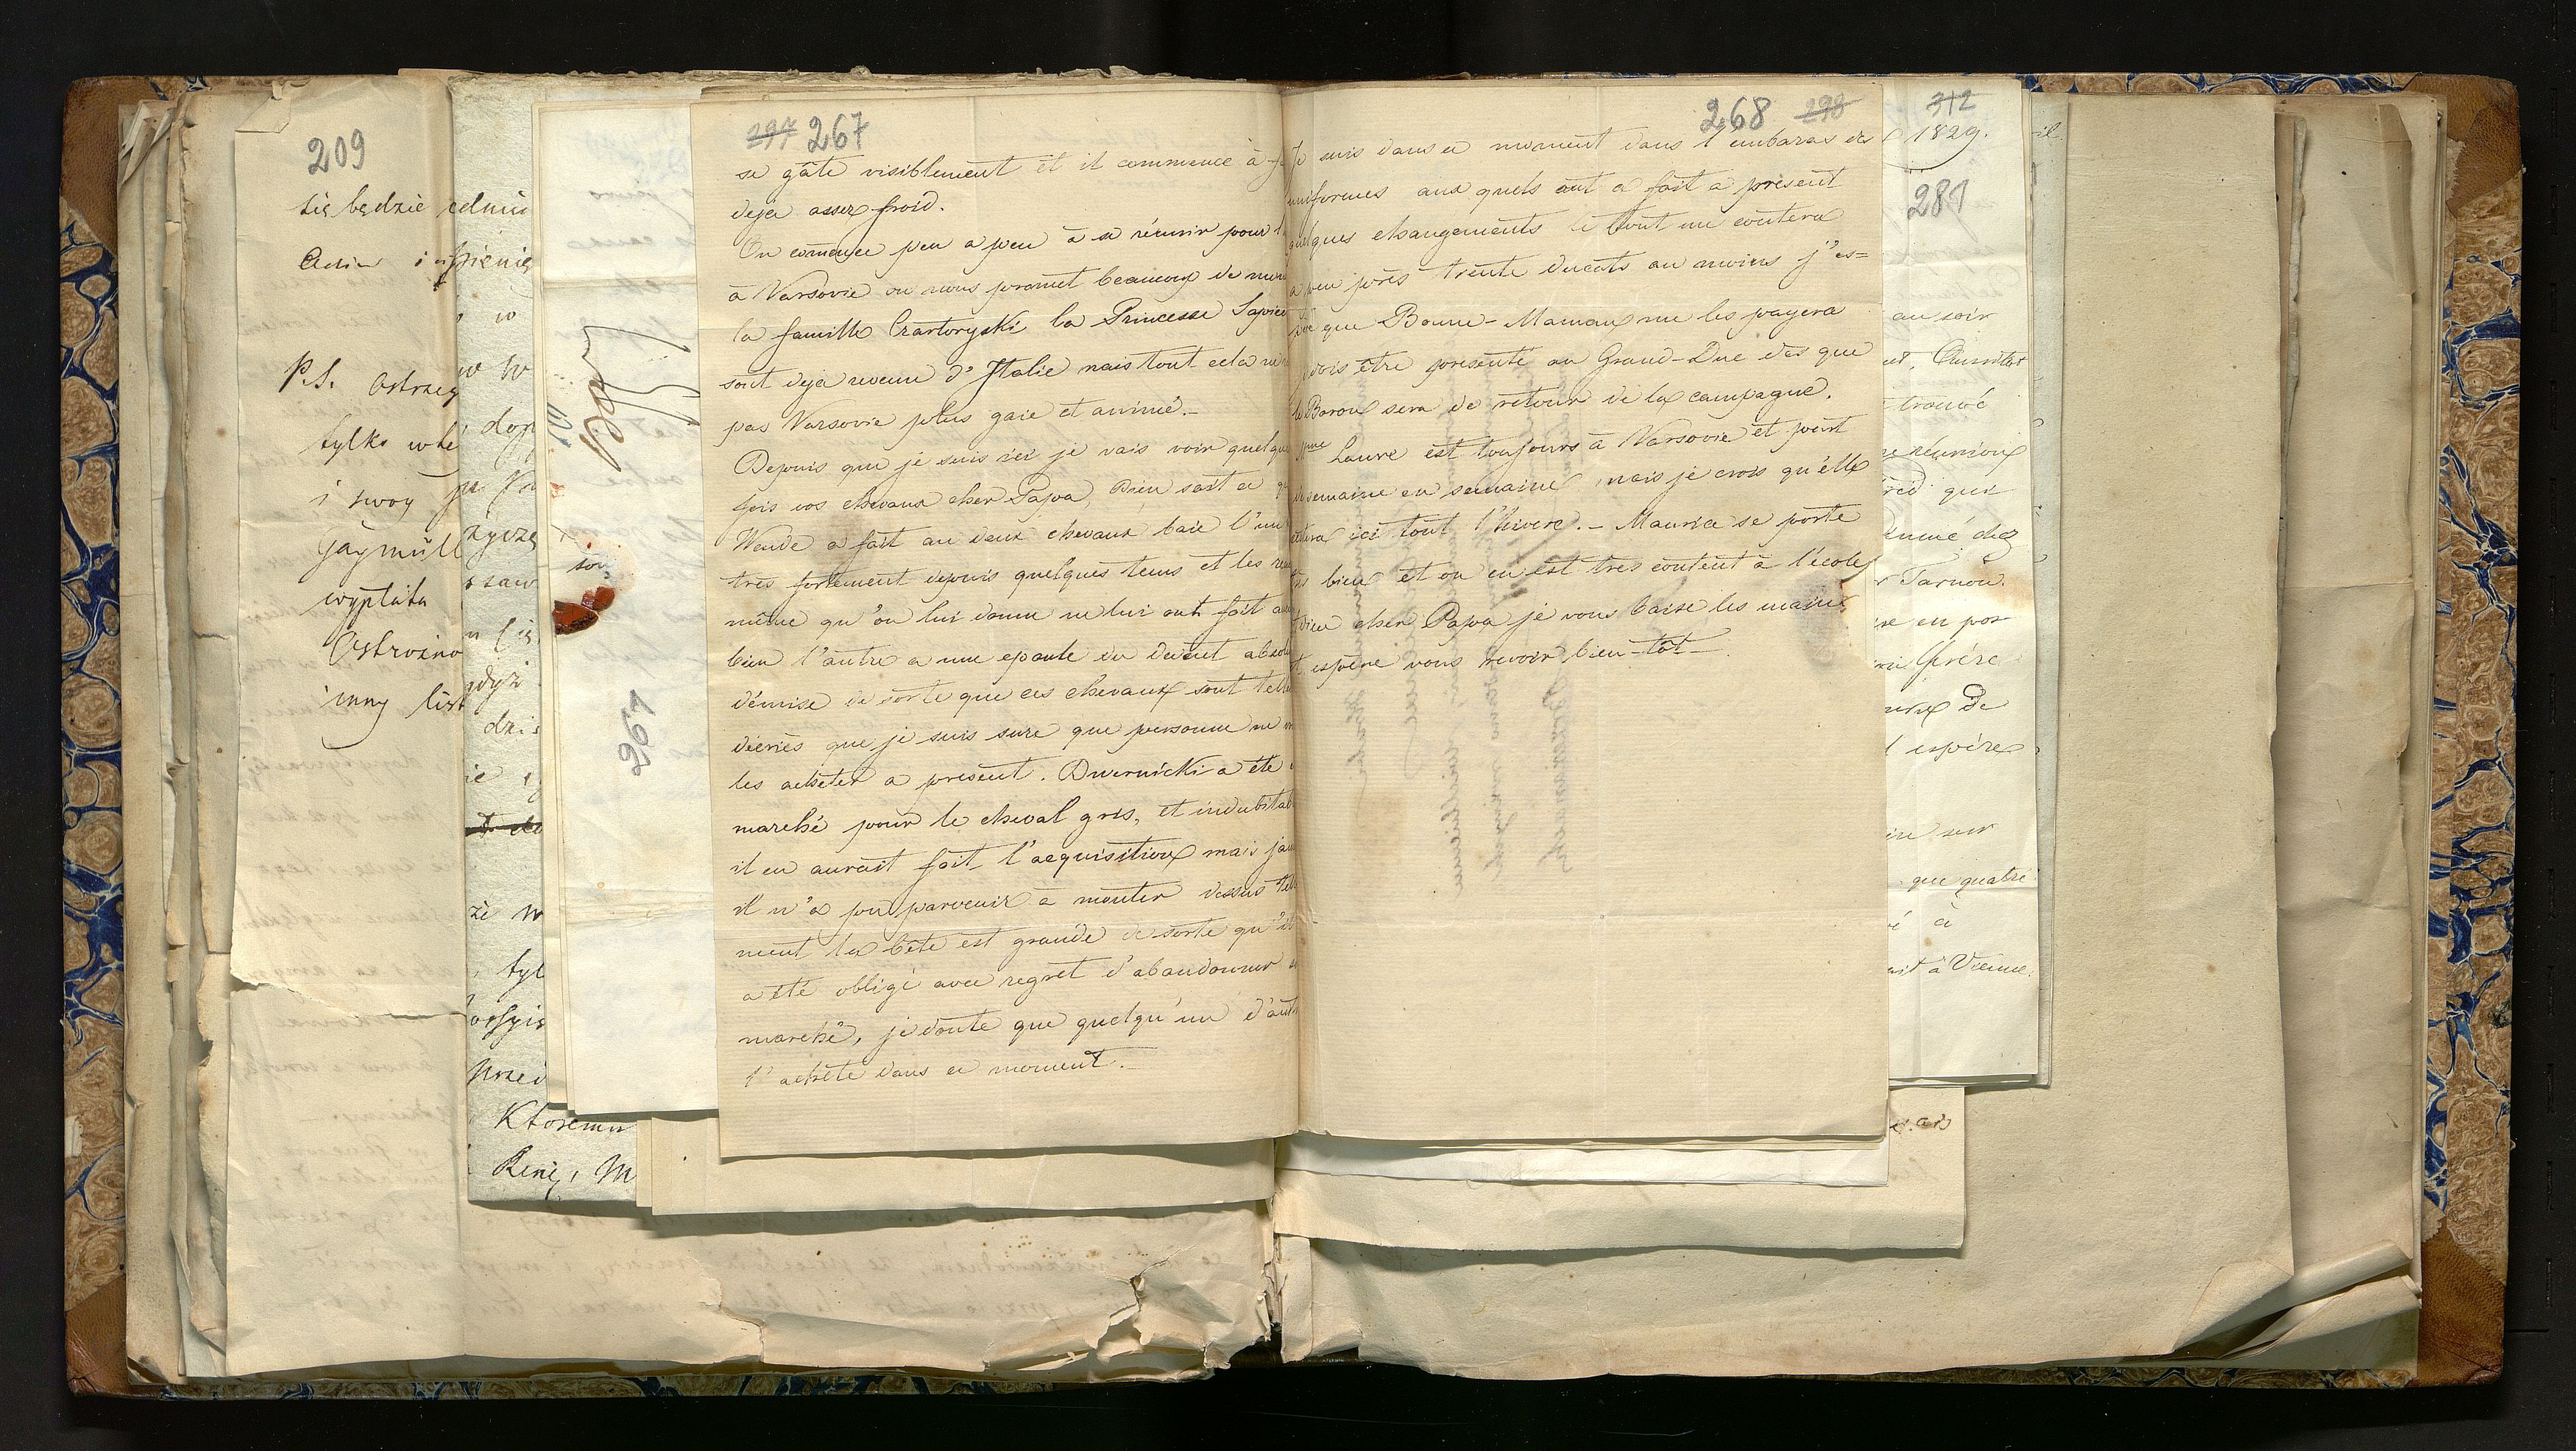 209
się będzie
P.S. Ostrzeg
tylko
i swoy
Gaymüll
wypłata
Ostrożno
inny list
dzi
Ktoremu
261
297 267
se gâte visiblement et il commence à
deja assez froid.
On comence peu a peu à se réunir pour
à Varsovie on nous promet beaucoup de
la famille Czartoryski la Princesse Sapieh
soit deja revenue d'Italie mais tout cela
pas Varsovie plus gaie et animé.
Depuis que je suis ici je vais voir quelque
fois vos chevaux cher Papa, Dieu sait ce
Wende a fait au deux chevaux baie l'un
tres fortement depuis quelques tems et les
même qu'on lui donne ne lui ont fait
bien l'autre a une epaule du devent absol
démise de sorte que ces chevaux sont telle
décriés que je suis sure que personne ne
les acheter a present. Dwernicki a été
marché pour le cheval gris, et indubitab
il en aurait fait l'acquisition mais ja
il n'a pu parvenir a monter dessus tell
ment la bête est grande de sorte qu'il
a été obligé avec regret d'abandonner
marché, je doute que quelqu'un d'aut
l'achète dans ce moment.
268 298
Je suis dans ce moment dans l'embaras des
uniformes aux quels ont a fait a présent
quelques changements le tout me coutera
a peu près trente ducats au moins j'es=
père que Bonne-Maman me les payera
je dois être presenté au Grand-Duc dès que
le Baron sera de retour de la campagne.
Mme Laure est toujours à Varsovie et part
de semaine en semaine, mais je crois qu'elle
restera ici tout l'hivere. - Maurice se porte
très bien et on en est tres content à l'école
Adieu cher Papa je vous baise les mains
et espère vous revoir bien-tôt.
312
1829.
281
au soir
trouvé
réunion
qui
chez
Tarnow.
en pos
frère
de
espère
sur
que quatre
à
à Vienne.